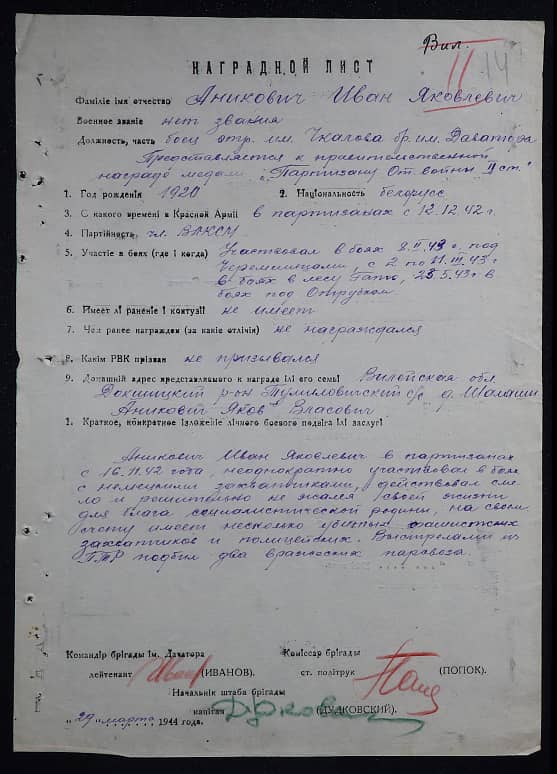 Вил.
II 14
НАГРАДНОЙ ЛИСТ
Фаміліе імя отчество Аникович Иван Яковлевич
Военное званіе нет звания
Должность, часть боец отр. им. Чкалова бр. им. Даватора
Представляется к правительственной
награде медали „Партизану От. войны II ст."
1. Год рожденія 1920 2. Національность белорусс
3. С какого времені в Красной Арміі в партизанах с 12.12.42 г.
4. Партійность чл. ВЛКСМ
5. Участіе в боях (где і когда) Участвовал в боях 8.II.43 г. под
с 2 по 11.III.43 г
в боях в лесу 23.5.43 г. в
боях под
6. Імеет лі раненіе і контузіі не имеет
7. Чем ранее награжден (за какіе отлічія) не награждался
8. Какім РВК прізван не призывался
9. Домашній адрес представляемого к награде ілі его семьі Вилейская обл.
Докшицкий р-он с/с д.
Аникович Яков Власович
1. Краткое, конкретное ізложеніе лічного боевого подвіга ілі заслуг
Аникович Иван Яковлевич в партизанах
с 16.11.42 года, неоднократно участвовал в боях
с немецкими захватчиками, действовал сме-
ло и решительно не жалея своей жизни
для блага социалистической родины, на своем
счету имеет несколько убитых фашистских
захватчиков и полицейских. Выстрелами из
ПТР подбил два вражеских паровоза.
Командір брігады ім. Даватора Коміссар брігады
лейтенант (ИВАНОВ). ст. політрук (ПОПОК).
Начальник штаба брігады
капітан (ДУДКОВСКИЙ).
„29" марта 1944 года.